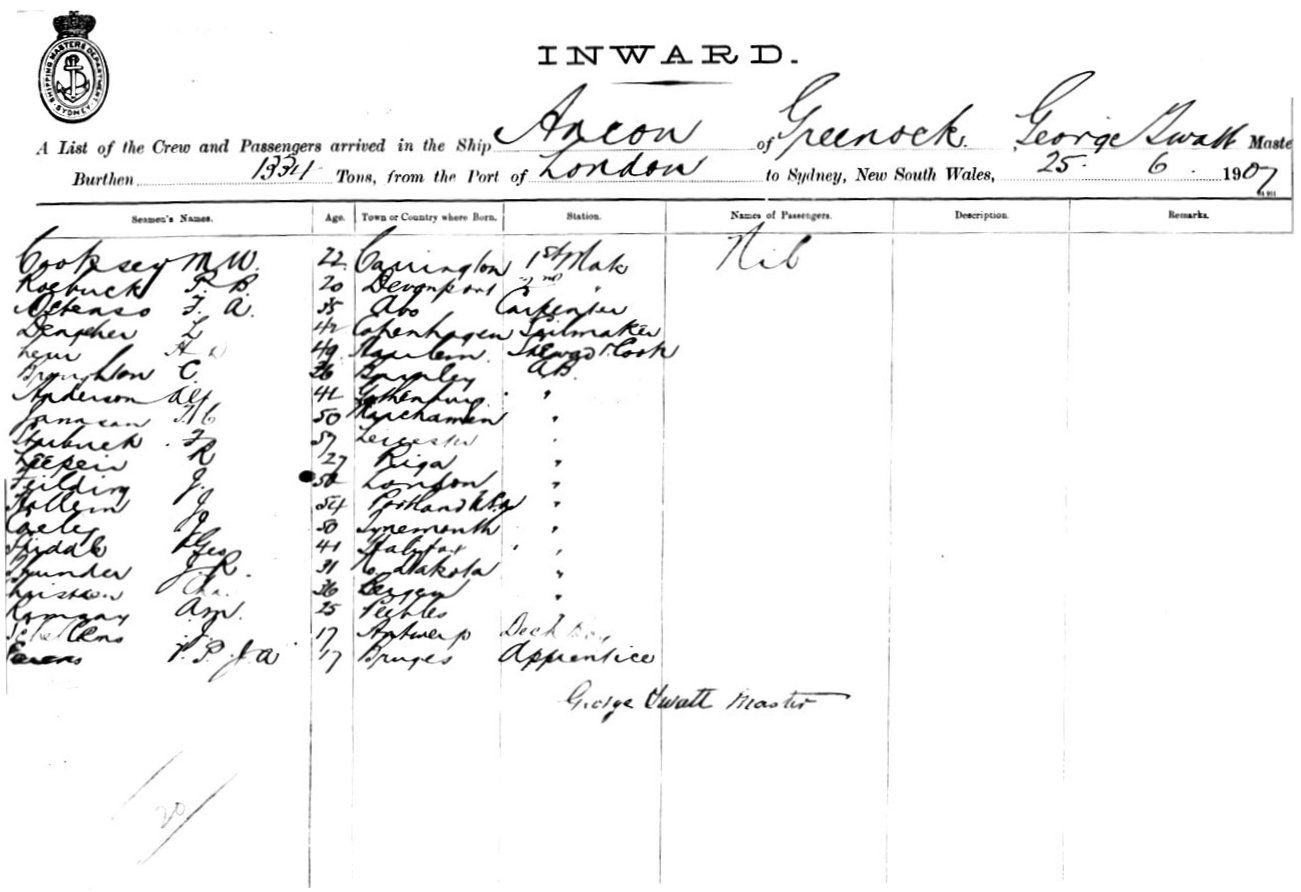 SHIPPING MASTERS DEPARTMENT SYDNEY
INWARD.
A List of the Crew and Passengers arrived in the Ship Ancon of Greenock. George Twatt Maste
Burthen 1334 Tons, from the Port of London to Sydney, New South Wales, 25. 6. 1907
Seamen's Names. Age. Town or Country where Born. Station. Names of Passengers. Description. Remarks.
Cooksey M W. 22 Carrington 1st Mate Nil
Roebuck P. B. 20 Devonport 2nd "
F. A. 35 Abo Carpenter
L 42 Copenhagen Sailmaker
49 Haarlem. Steward & Cook
Broughton C. 36 Burnley AB
Anderson Alf 42 Gothenburg "
50 "
Starbuck F. 57 Leicester "
R 27 Riga "
Feilding J. 50 London "
J 54 Portland "
J 50 Tynemouth "
Geo 41 Halifax "
J. R. 31 N. Dakota "
36 Bergen "
Ramsay A m. 25 Peebles "
J. 17 Antwerp Deck Boy
P. J. A 17 Bruges Apprentice
George Twatt Master
20